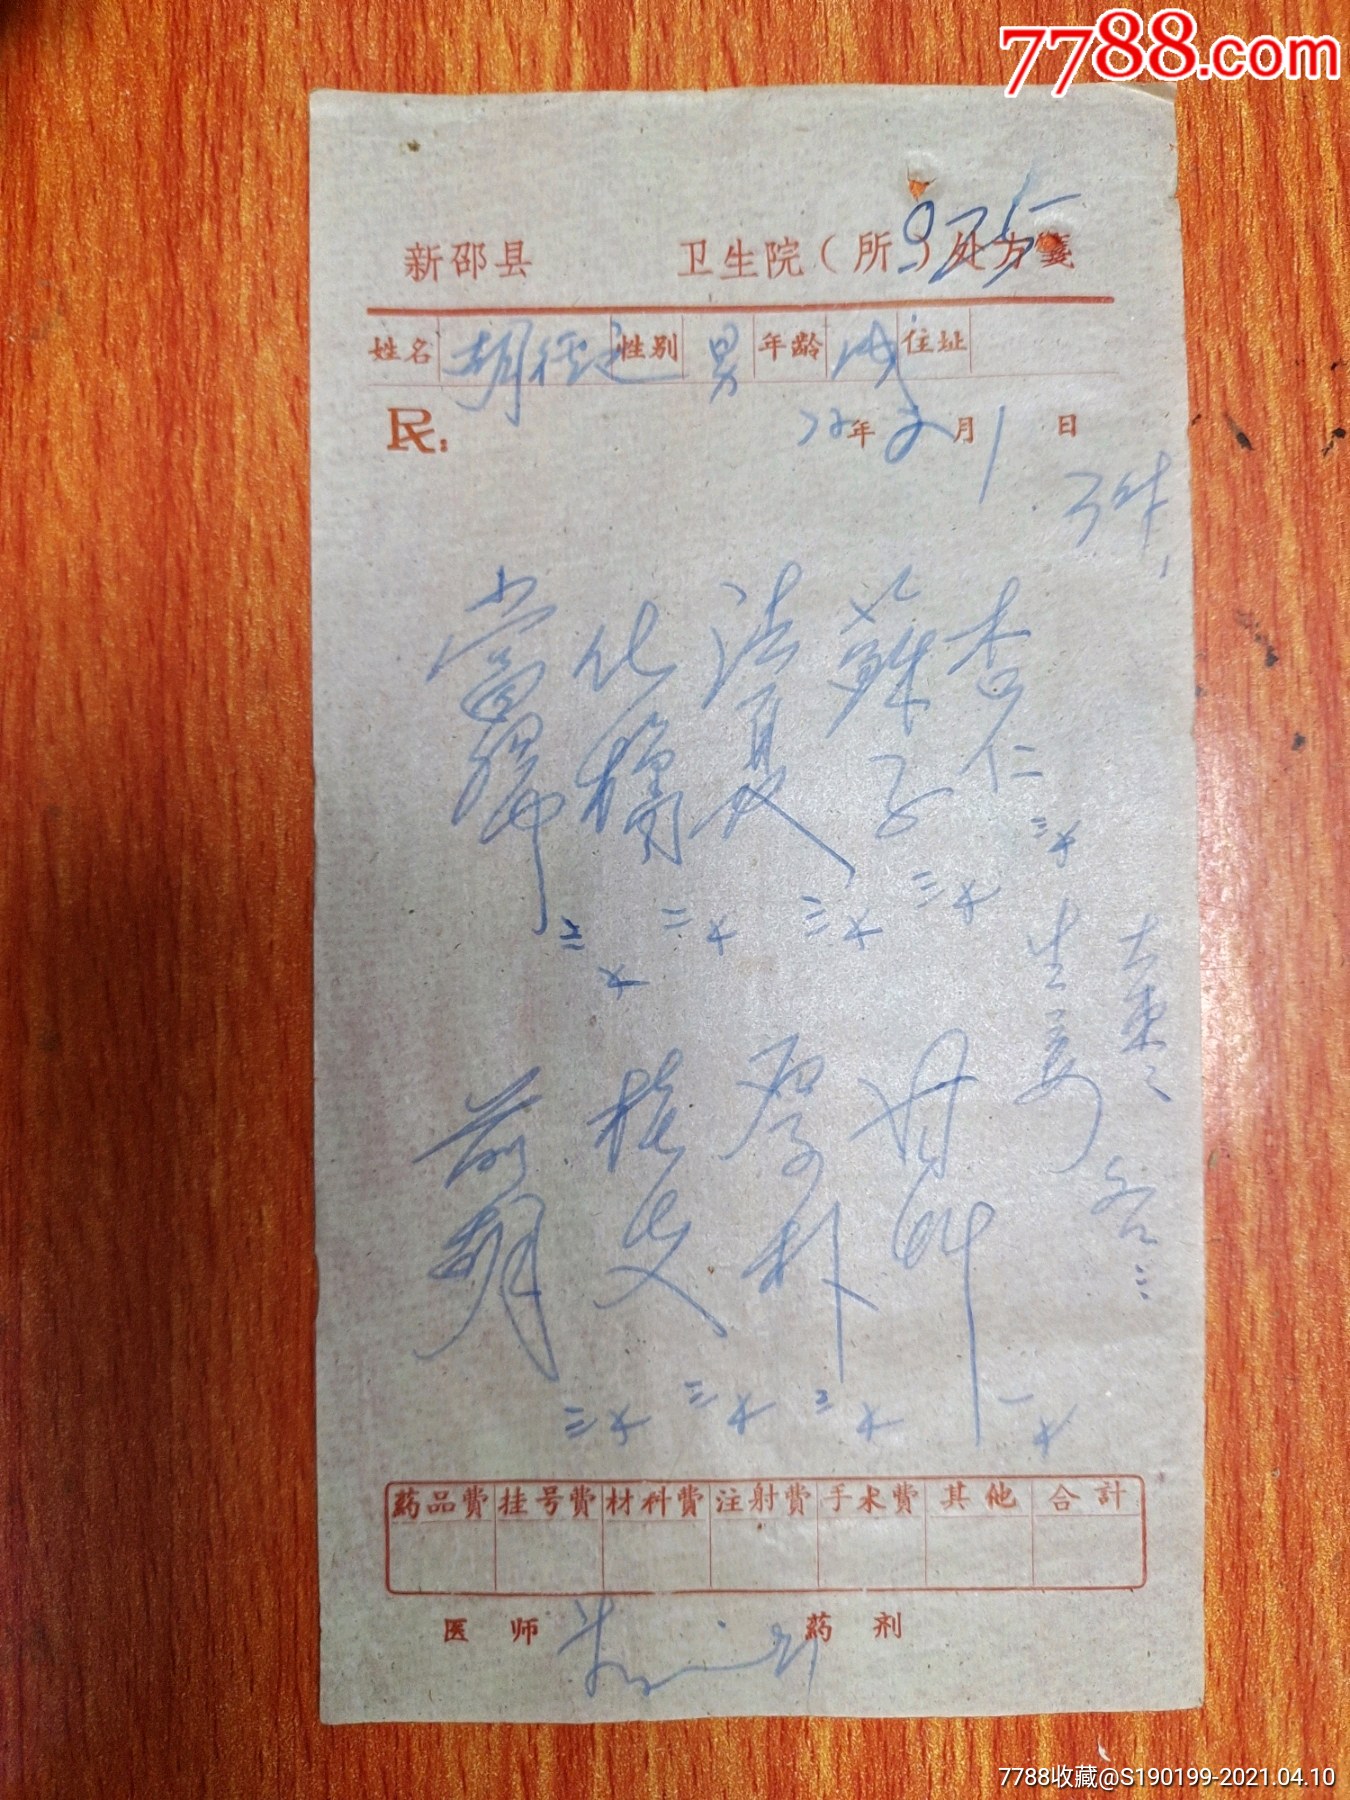 7788.com
新邵县 卫生院（所）处方笺
姓名 胡 性别 男 年龄 成 住址
R: 72年 月 1 日
當歸 三钱
化橘 二钱
法夏 三钱
蘇子 三钱
杏仁 三钱
前胡 三钱
三钱
厚朴 二钱
甘草 一钱
生姜
大枣
各三
药品費 挂号費 材料費 注射費 手术費 其他 合計
医师 药剂
7788收藏@S190199-2021.04.10